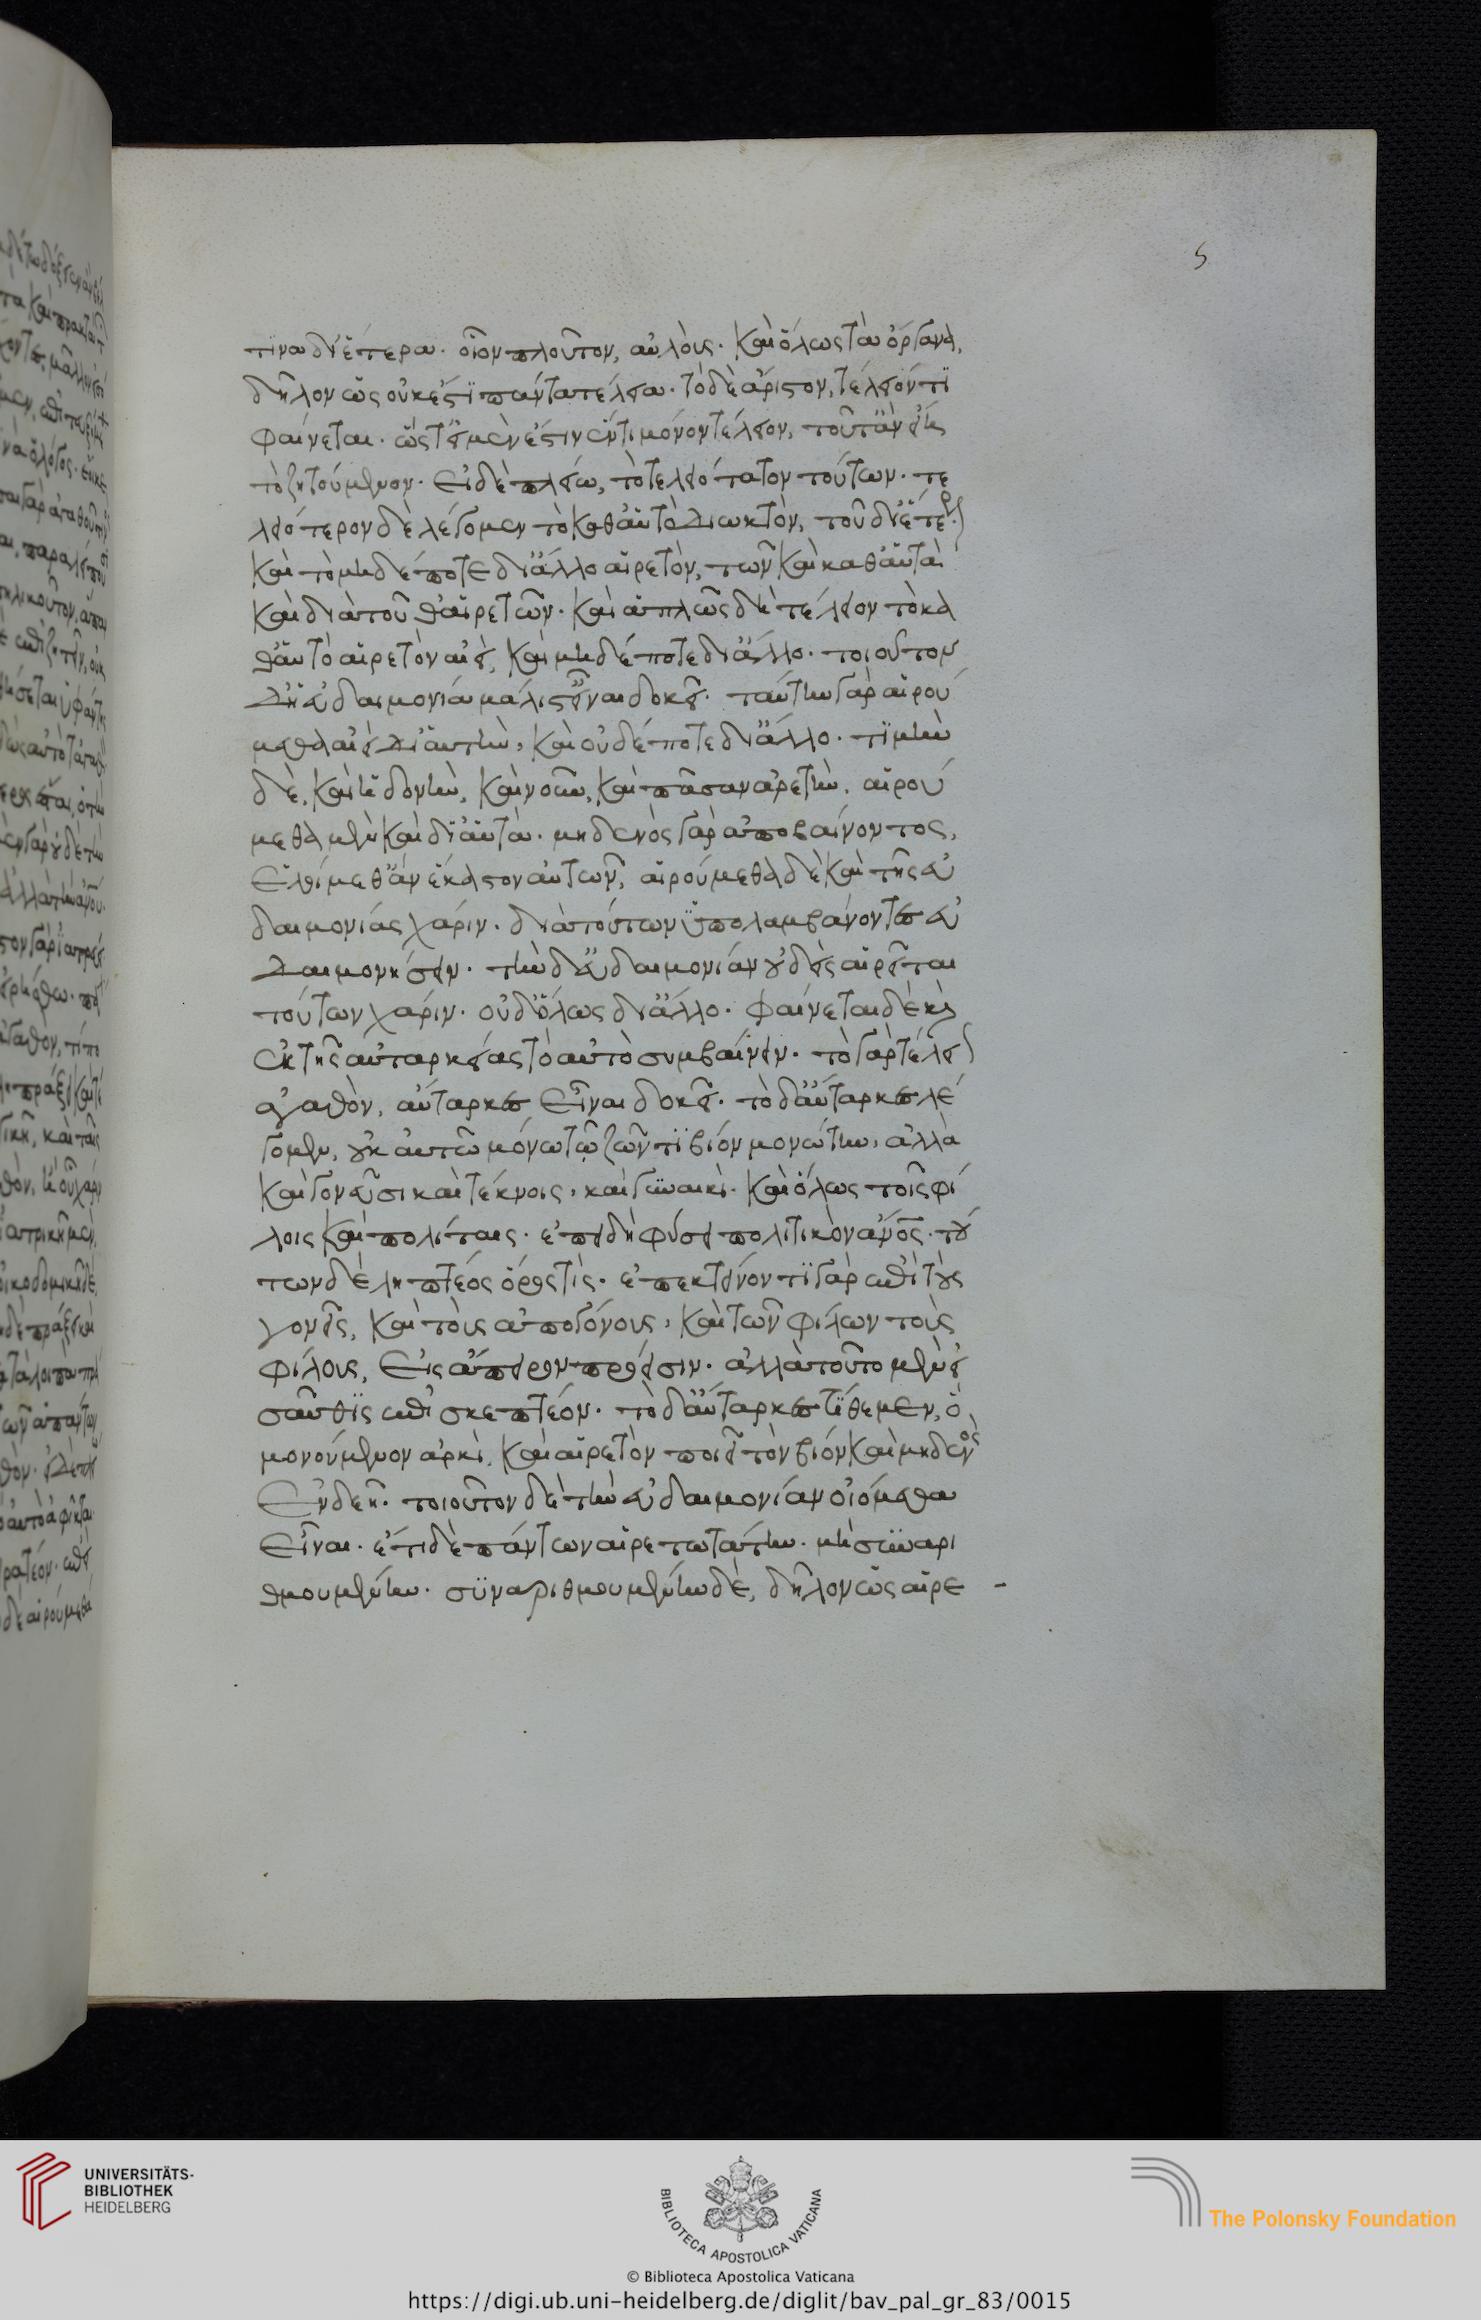 5
τινὰ δι' ἕτερα. οἷον πλοῦτον, αὐλούς. καὶ ὅλως τὰ ὄργανα,
δῆλον ὡς οὐκ ἔστι πάντα τέλεια. τὸ δὲ ἄριστον, τέλειόν τι
φαίνεται. ὥστ' εἰ μὲν ἐστὶν ἕν τι μόνον τέλειον, τοῦτ' ἂν εἴη
τὸ ζητούμενον. εἰ δὲ πλείω, τὸ τελειότατον τούτων. τε
λειότερον δὲ λέγομεν τὸ καθ' αὑτὸ διωκτὸν, τοῦ δι' ἕτερον
καὶ τὸ μηδέποτε δι' ἄλλο αἱρετὸν, τῶν καὶ καθ' αὑτὰ
καὶ διὰ τοῦθ' αἱρετῶν. καὶ ἁπλῶς δὴ τέλειον τὸ κα
θ' αὑτὸ αἱρετὸν αἰεὶ, καὶ μηδέποτε δι' ἄλλο. τοιοῦτον
δ' ἡ εὐδαιμονία μάλιστ' εἶναι δοκεῖ. ταύτην γὰρ αἱρού
μεθα αἰεὶ δι' αὐτὴν, καὶ οὐδέποτε δι' ἄλλο. τιμὴν
δὲ, καὶ ἡδονὴν, καὶ νοῦν, καὶ πᾶσαν ἀρετὴν, αἱρού
μεθα μὲν καὶ δι' αὐτά. μηδενὸς γὰρ ἀποβαίνοντος,
ἑλοίμεθ' ἂν ἕκαστον αὐτῶν, αἱρούμεθα δὲ καὶ τῆς εὐ
δαιμονίας χάριν. διὰ τούτων ὑπολαμβάνοντες εὐ
δαιμονήσειν. τὴν δ' εὐδαιμονίαν οὐδεὶς αἱρεῖται
τούτων χάριν. οὐδ' ὅλως δι' ἄλλο. φαίνεται δὲ καὶ
ἐκ τῆς αὐταρκείας τὸ αὐτὸ συμβαίνειν. τὸ γὰρ τέλειον
ἀγαθὸν, αὔταρκες εἶναι δοκεῖ. τὸ δ' αὔταρκες λέ
γομεν, οὐκ αὐτῷ μόνῳ τῷ ζῶντι βίον μονώτην, ἀλλὰ
καὶ γονεῦσι καὶ τέκνοις, καὶ γυναικὶ. καὶ ὅλως τοῖς φί
λοις καὶ πολίταις. ἐπειδὴ φύσει πολιτικὸν ἄνος. τού
των δὲ ληπτέος ὅρος τίς. ἐπεκτείνοντι γὰρ ἐπὶ τοὺς
γονεῖς, καὶ τοὺς ἀπογόνους, καὶ τῶν φίλων τοὺς
φίλους, εἰς ἄπειρον πρόεισιν. ἀλλὰ τοῦτο μὲν εἰ
σαῦθις ἐπισκεπτέον. τὸ δ' αὔταρκες τίθεμεν, ὃ
μονούμενον ἀρκὶ, καὶ αἱρετὸν ποιεῖ τὸν βίον καὶ μηδενὸς
ἐνδεῆ. τοιοῦτον δὲ τὴν εὐδαιμονίαν οἰόμεθα
εἶναι. ἔτι δὲ πάντων αἱρετωτάτην. μὴ συναρι
θμουμένην. συναριθμουμένην δὲ, δῆλον ὡς αἱρε -
UNIVERSITÄTS-
BIBLIOTHEK
HEIDELBERG
BIBLIOTECA APOSTOLICA VATICANA
© Biblioteca Apostolica Vaticana
The Polonsky Foundation
https://digi.ub.uni-heidelberg.de/diglit/bav_pal_gr_83/0015